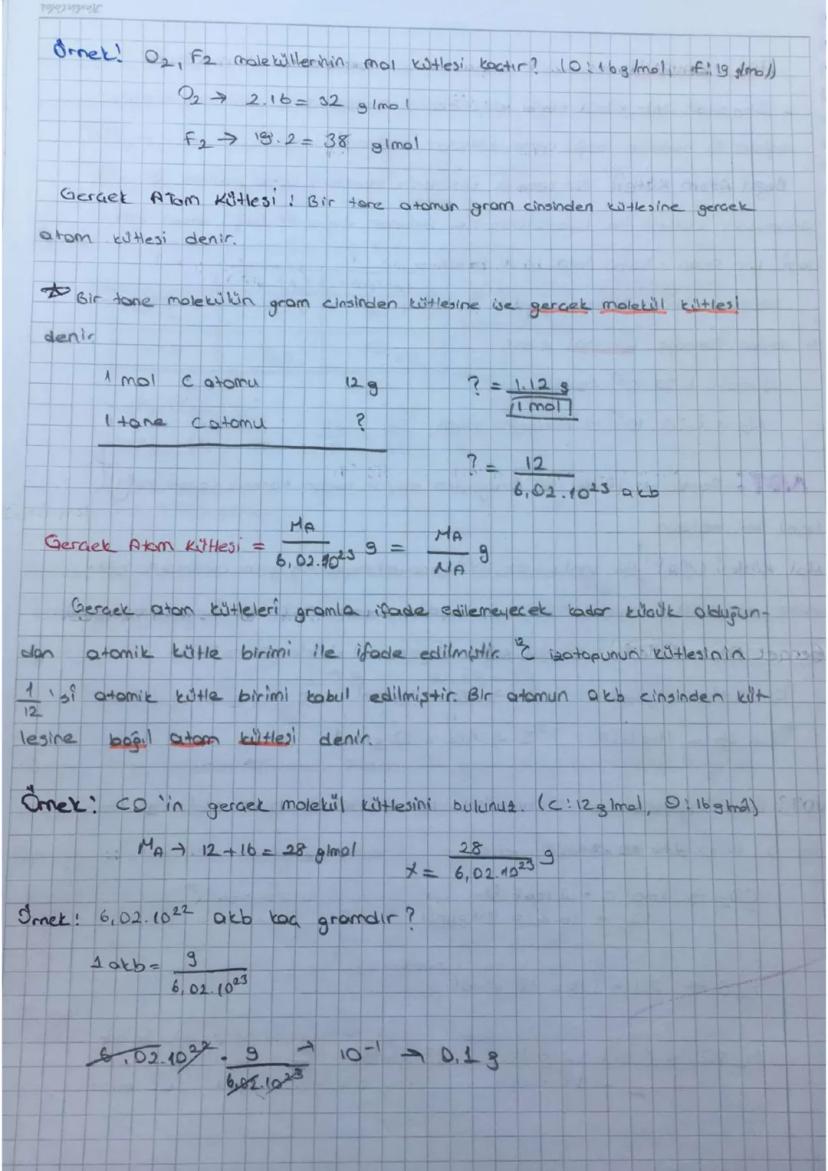 Örnek! O2, F2 moleküllerinin mol kütlesi kaçtır? (O:16g/mol, F:19 g/mol)
O2 → 2.16 = 32 g/mol
F2 → 19.2 = 38 g/mol
Gerçek Atom Kütlesi: Bir tane atomun gram cinsinden kütlesine gerçek
atom kütlesi denir.
☆ Bir tane molekülün gram cinsinden kütlesine ise gerçek molekül kütlesi
denir
1 mol C atomu 12 g ? = 1.12 g / 1 mol
1 tane C atomu ?
? = 12 / 6,02.10²³ akb
Gerçek Atom Kütlesi = MA / 6,02.10²³ g = MA / NA g
Gerçek atom kütleleri gramla ifade edilemeyecek kadar küçük olduğun-
dan atomik kütle birimi ile ifade edilmiştir. ¹²C izotopunun kütlesinin
1/12 'si atomik kütle birimi kabul edilmiştir. Bir atomun akb cinsinden küt-
lesine bağıl atom kütlesi denir.
Örnek: CO'in gerçek molekül kütlesini bulunuz. (C:12g/mol, O:16g/mol)
MA → 12+16 = 28 g/mol x = 28 / 6,02.10²³ g
Örnek: 6,02.10²² akb kaç gramdır?
1 akb = g / 6,02.10²³
6,02.10²² . g / 6,02.10²³ → 10⁻¹ → 0,1 g